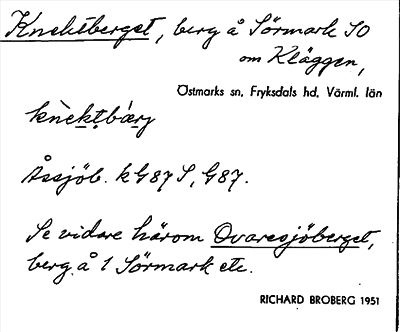 Knektberget, berg å Sörmark SO
om Kläggen,
Östmarks sn, Fryksdals hd, Värml. län
knèktbærg
Åssjöb. kG87S, G87.
Se vidare härom Ovaresjöberget,
berg å 1 Sörmark etc.
RICHARD BROBERG 1951